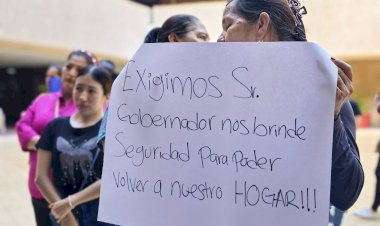 Exigimos Sr.
Gobernador nos brinde
Seguridad para poder
volver a nuestro HOGAR!!!